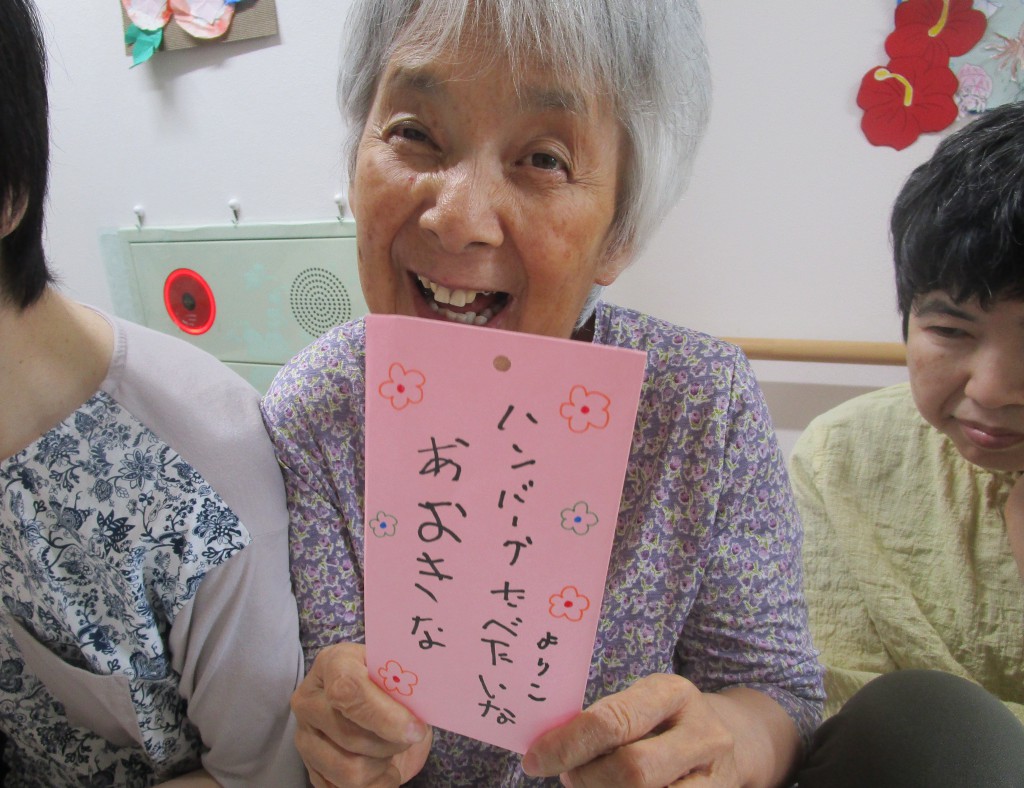 あおきな
ハンバーグたべたいな
よりこ